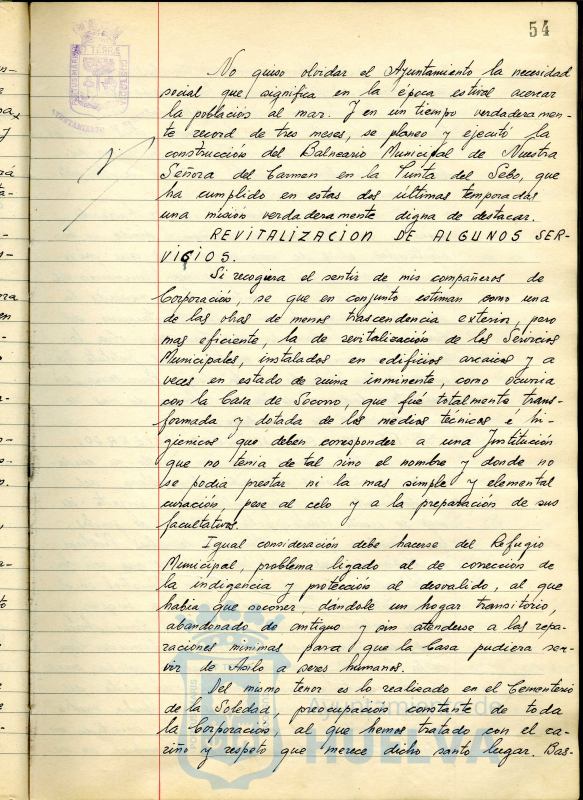 54
No quiso olvidar el Ayuntamiento la necesidad
social que significa en la época estival acercar
la población al mar. Y en un tiempo verdaderamen-
te record de tres meses, se planeo y ejecutó la
construcción del Balneario Municipal de Nuestra
Señora del Carmen en la Punta del Sebo, que
ha cumplido en estas dos últimas temporadas
una misión verdaderamente digna de destacar.
REVITALIZACION DE ALGUNOS SER-
VICIOS.
Si recogiera el sentir de mis compañeros de
Corporación, se que en conjunto estiman como una
de las obras de menos trascendencia exterior, pero
mas eficiente, la de revitalización de los Servicios
Municipales, instalados en edificios arcaicos y a
veces en estado de ruina inminente, como ocurria
con la Casa de Socorro, que fué totalmente trans-
formada y dotada de los medios técnicos é hi-
gienicos que deben corresponder a una Institución
que no tenia de tal sino el nombre y donde no
se podia prestar ni la mas simple y elemental
curación, pese al celo y a la preparación de sus
facultativos.
Igual consideración debe hacerse del Refugio
Municipal, problema ligado al de corrección de
la indigencia y protección al desvalido, al que
habia que socorrer, dándole un hogar transitorio,
abandonado de antiguo y sin atenderse a las repa-
raciones minimas para que la Casa pudiera ser-
vir de Asilo a seres humanos.
Del mismo tenor es lo realizado en el Cementerio
de la Soledad, preocupación constante de toda
la Corporación, al que hemos tratado con el ca-
riño y respeto que merece dicho santo lugar. Bas-
Ayuntamiento de
HUELVA